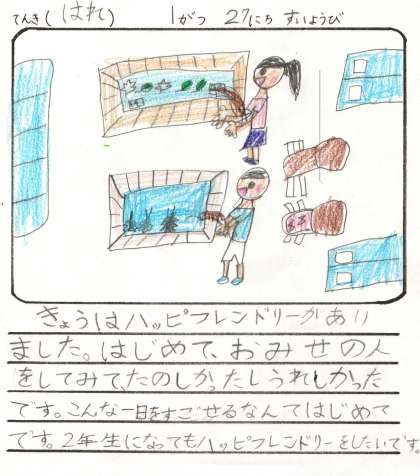 てんき(はれ) 1がつ 27にち すいようび
きょうはハッピフレンドリーがあり
ました。はじめて、おみせの人
をしてみて、たのしかったしうれしかった
です。こんな一日をすごせるなんてはじめて
です。2年生になってもハッピフレンドリーをしたいです。